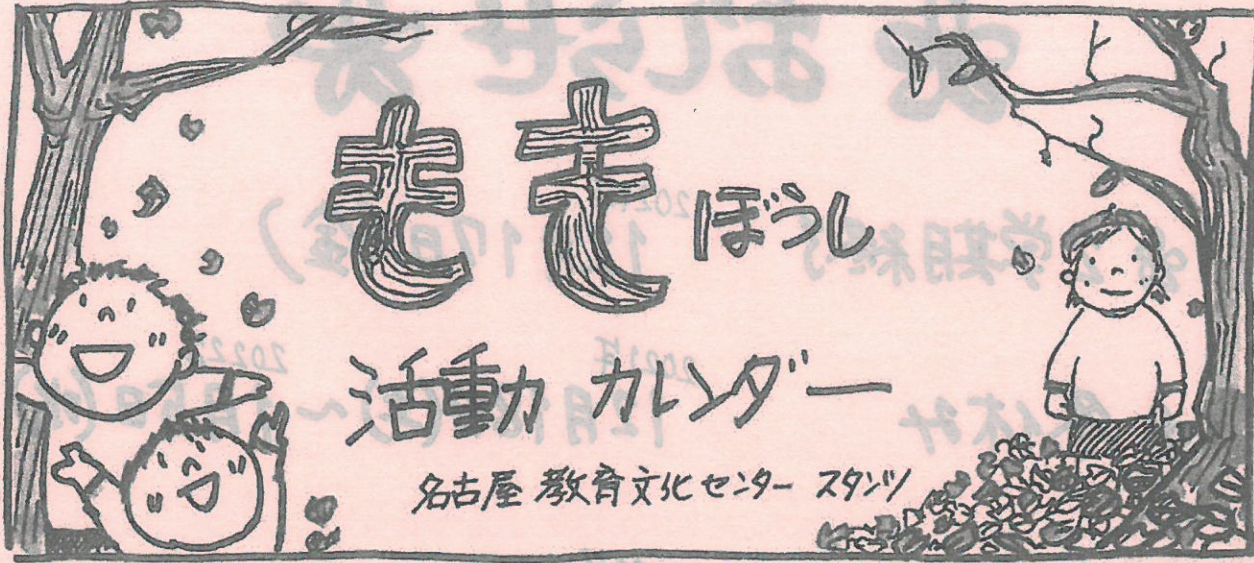 ももぼうし
活動カレンダー
名古屋教育文化センター スタンツ